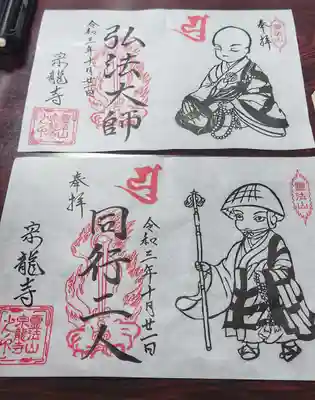 奉拝
弘法大師
令和三年十月廿一日
宗龍寺
霊法山
令和三年十月廿一日
同行二人
奉拝
宗龍寺
霊法山